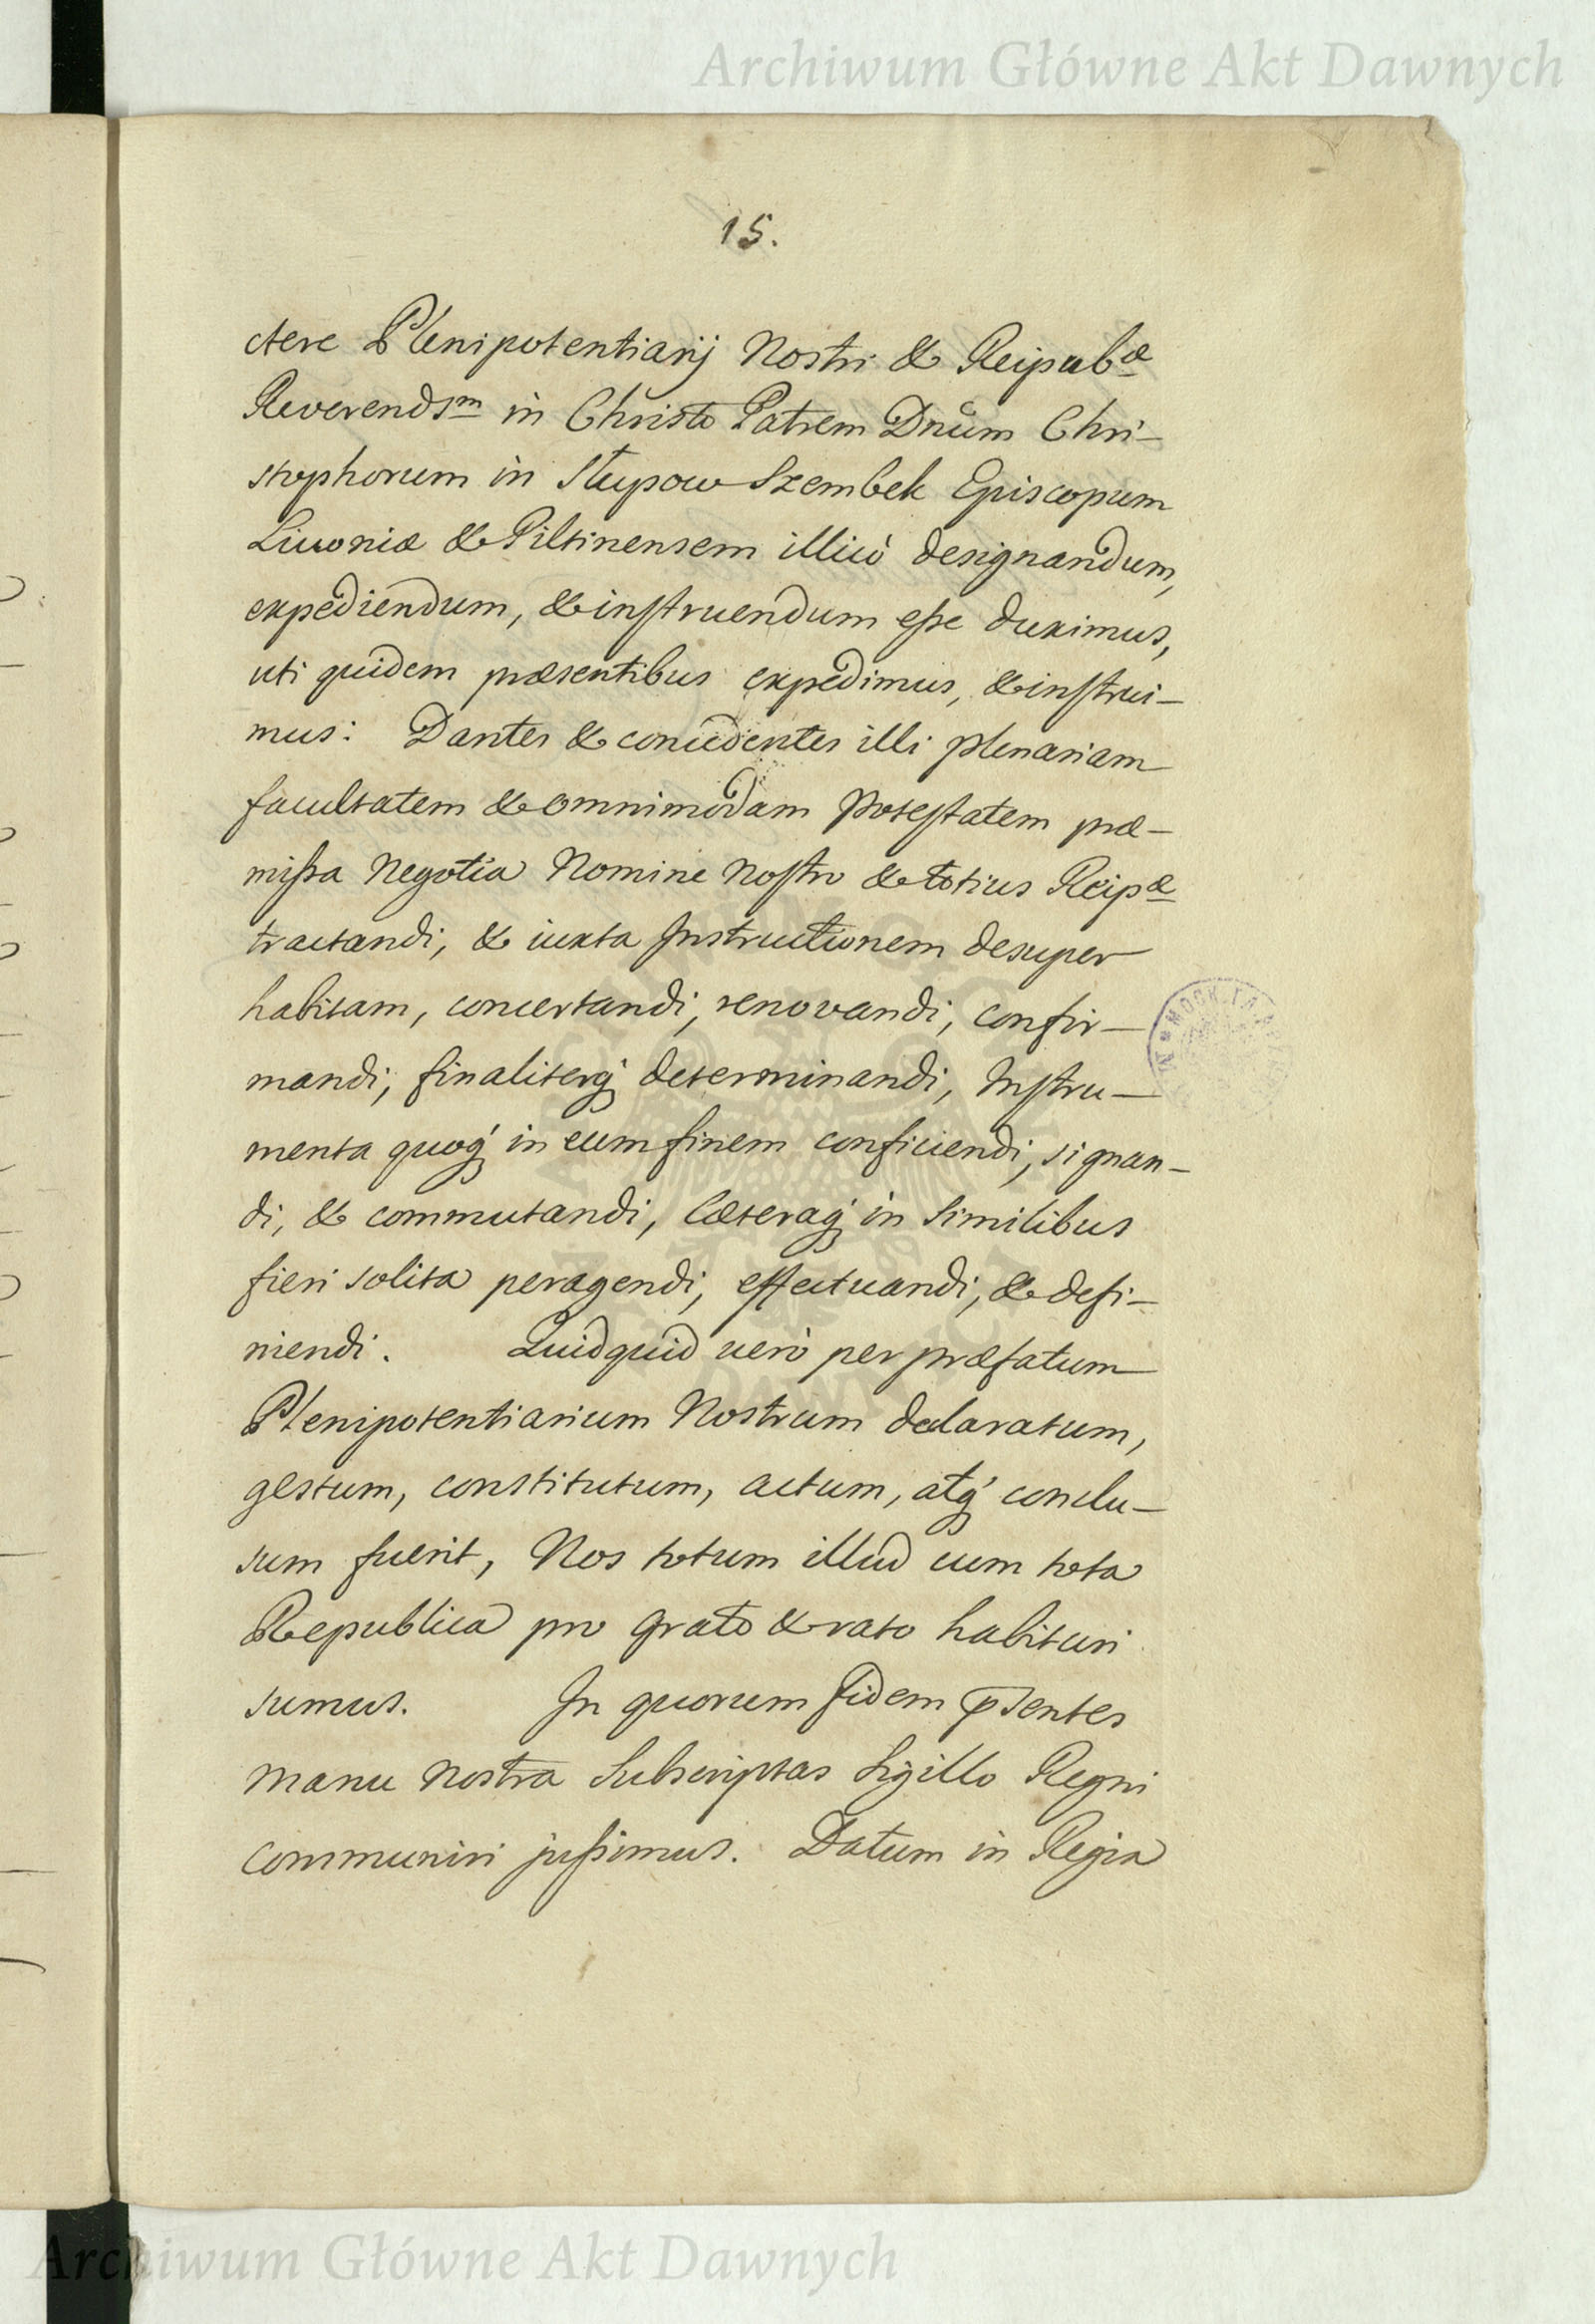 Archiwum Główne Akt Dawnych
15.
ctere Plenipotentiarij Nostri & Reipubæ
Reverendsm in Christo Patrem Dnum Chri-
stophorum in Słupow Szembek Episcopum
Livoniæ & Piltinensem illicò designandum,
expediendum, & instruendum esse duximus,
uti quidem præsentibus expedimus, & instrui-
mus: Dantes & concedentes illi plenariam
facultatem & omnimodam potestatem præ-
missa Negotia Nomine nostro & totius Reipæ
tractandi, & iuxta Instructionem desuper
habitam, concertandi, renovandi, confir-
mandi, finaliterq; determinandi, Instru-
menta quoq; in eum finem conficiendi, signan-
di, & commutandi, Cæteraq; in similibus
fieri solita peragendi, effectuandi, & defi-
niendi. Quidquid verò per præfatum
Plenipotentiarium Nostrum declaratum,
gestum, constitutum, actum, atq; conclu-
sum fuerit, Nos totum illud cum tota
Republica pro grato & rato habituri
sumus. In quorum fidem p̄sentes
manu nostra Subscriptas Sigillo Regni
communiri jussimus. Datum in Regia
Archiwum Główne Akt Dawnych